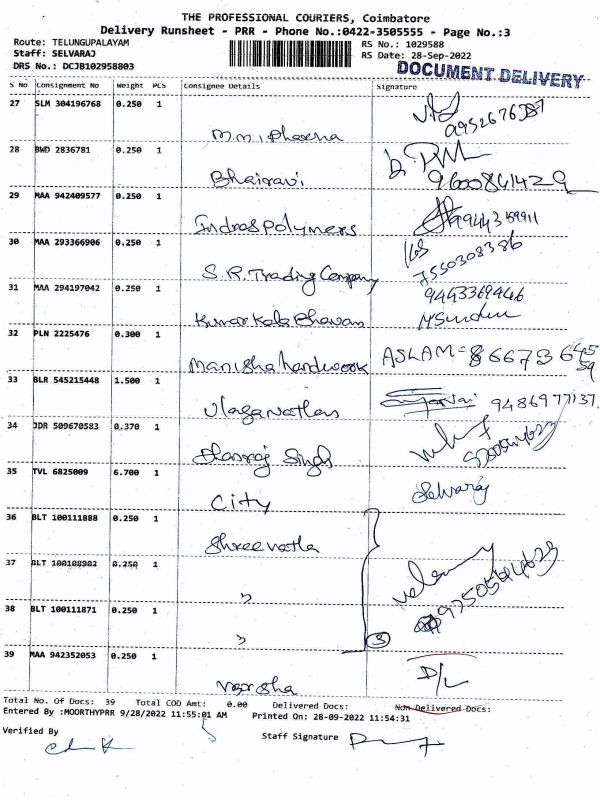 THE PROFESSIONAL COURIERS, Coimbatore
Delivery Runsheet - PRR - Phone No.:0422-3505555 - Page No.:3
Route: TELUNGUPALAYAM
Staff: SELVARAJ
DRS No.: DCJB102958803
RS No.: 1029588
RS Date: 28-Sep-2022
DOCUMENT DELIVERY
S No Consignment No Weight PCS Consignee Details Signature
27 SLM 304196768 0.250 1
28 BWD 2836781 0.250 1
Bhairavi 9600841429
29 MAA 942409577 0.250 1
Indraspolymers
30 MAA 293366906 0.250 1
S.R. Trading Company 7550308386
31 MAA 294197042 0.250 1
9443369446
32 PLN 2225476 0.300 1
Manisha ASLAM=
33 BLR 545215448 1.500 1
Ulaganathan 9486977137
34 JDR 509670583 0.370 1
Dhanraj Singh
35 TVL 6825009 6.700 1
City Selvaraj
36 BLT 100111888 0.250 1
37 BLT 100108982 0.250 1
"
38 BLT 100111871 0.250 1
" 3
39 MAA 942352053 0.250 1
D/L
Total No. Of Docs: 39 Total COD Amt: 0.00 Delivered Docs: Non Delivered Docs:
Entered By :MOORTHYPRR 9/28/2022 11:55:01 AM Printed On: 28-09-2022 11:54:31
Verified By Staff Signature